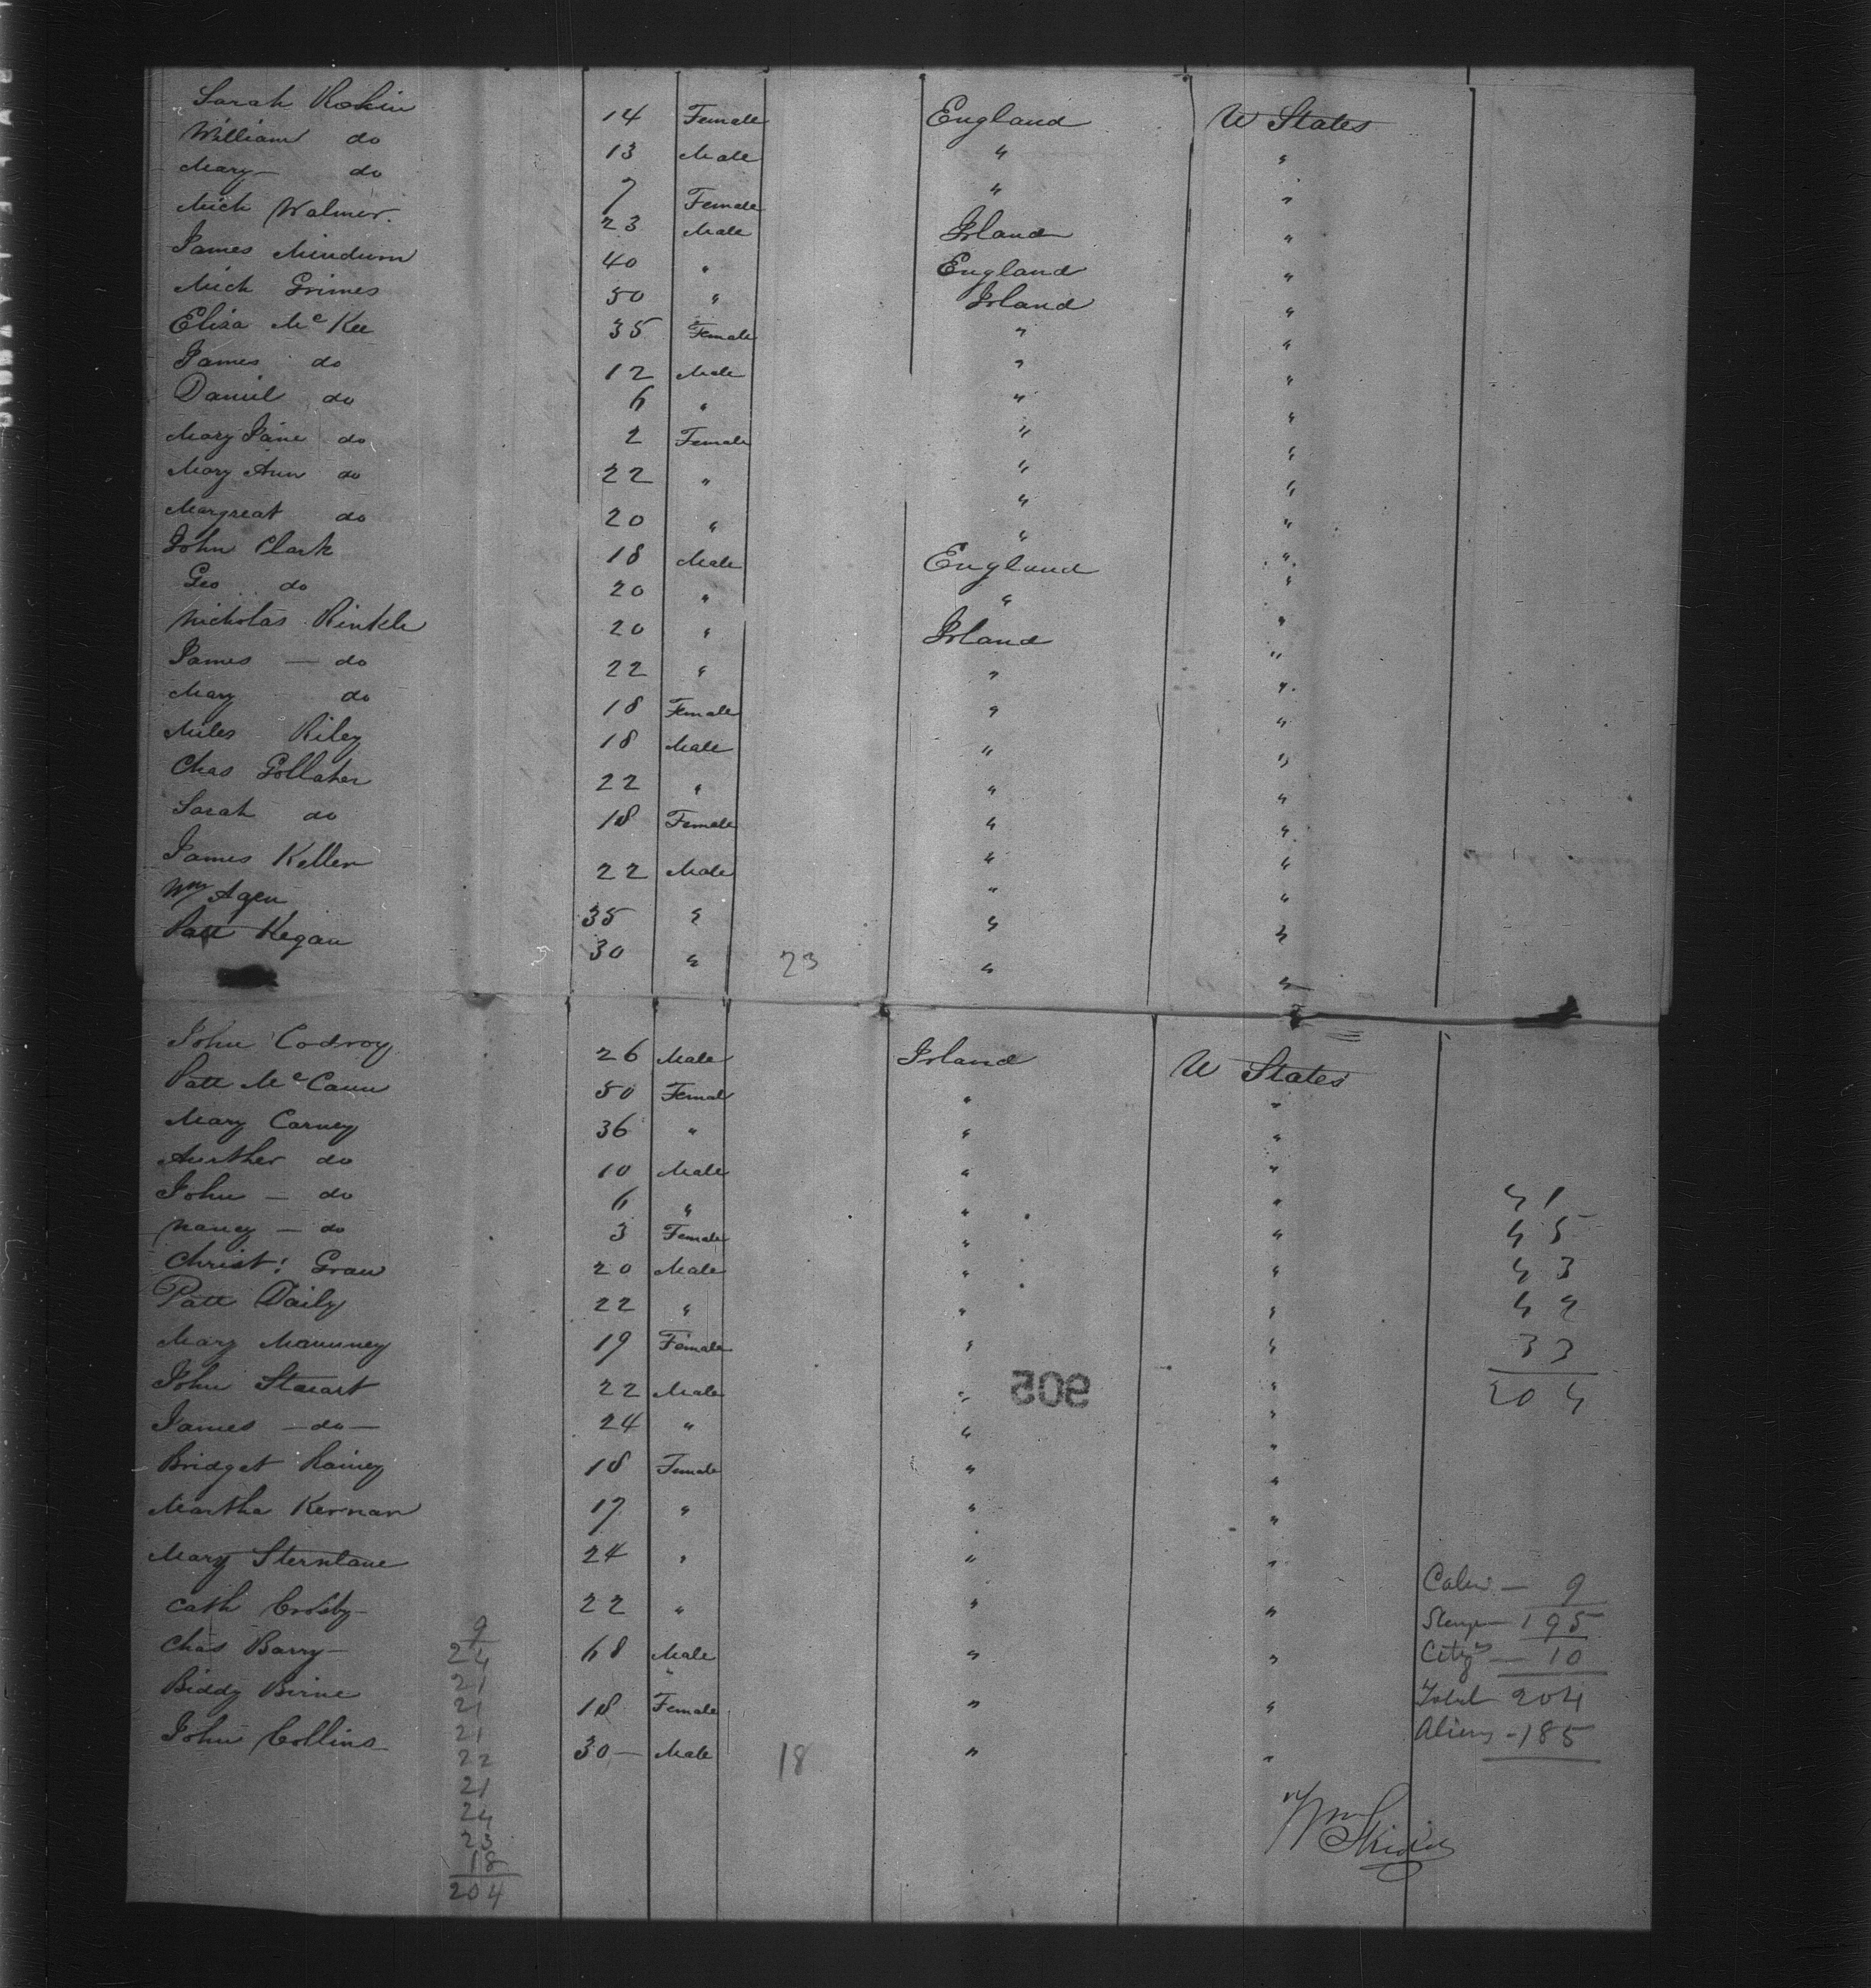 Sarah Rokin 14 Female England U States
William do 13 Male " "
Mary do 7 Female " "
Mich Walmer. 23 Male Irland "
James Mindurn 40 " England "
Mich Grimes 50 " Irland "
Eliza McKee 35 Female " "
James do 12 Male " "
Daniel do 6 " " "
Mary Jane do 2 Female " "
Mary Ann do 22 " " "
Margreat do 20 " " "
John Clark 18 Male England "
Geo do 20 " " "
Nicholas Rinkle 20 " Irland "
James — do 22 " " "
Mary do 18 Female " "
Miles Riley 18 Male " "
Chas Gollaher 22 " " "
Sarah do 18 Female " "
James Keller 22 Male " "
Wm Agen 35 " " "
Patt Kegan 30 " 23 " "
John Codroy 26 Male Irland U States
Patt McCann 50 Female " "
Mary Carney 36 " " "
Aurther do 10 Male " "
John — do 6 " " " 41
Nancy — do 3 Female " " 45
Christ: Gran 20 Male " " 43
Patt Daily 22 " " " 42
Mary Mamney 19 Female " " 33
John Stewart 22 Male " " 204
905
James — do — 24 " " "
Bridget Rainey 18 Female " "
Martha Kernan 17 " " "
Mary Sterntane 24 " " "
Cath Crosby 22 " " "
Chas Barry 68 Male " "
Biddy Birne 18 Female " "
John Collins 30 — Male 18 " "
Cabin — 9
Steerge — 195
Citzs — 10
Total 204
Aliens - 185
9
24
21
21
21
22
21
24
23
18
204
Wm Skiddy